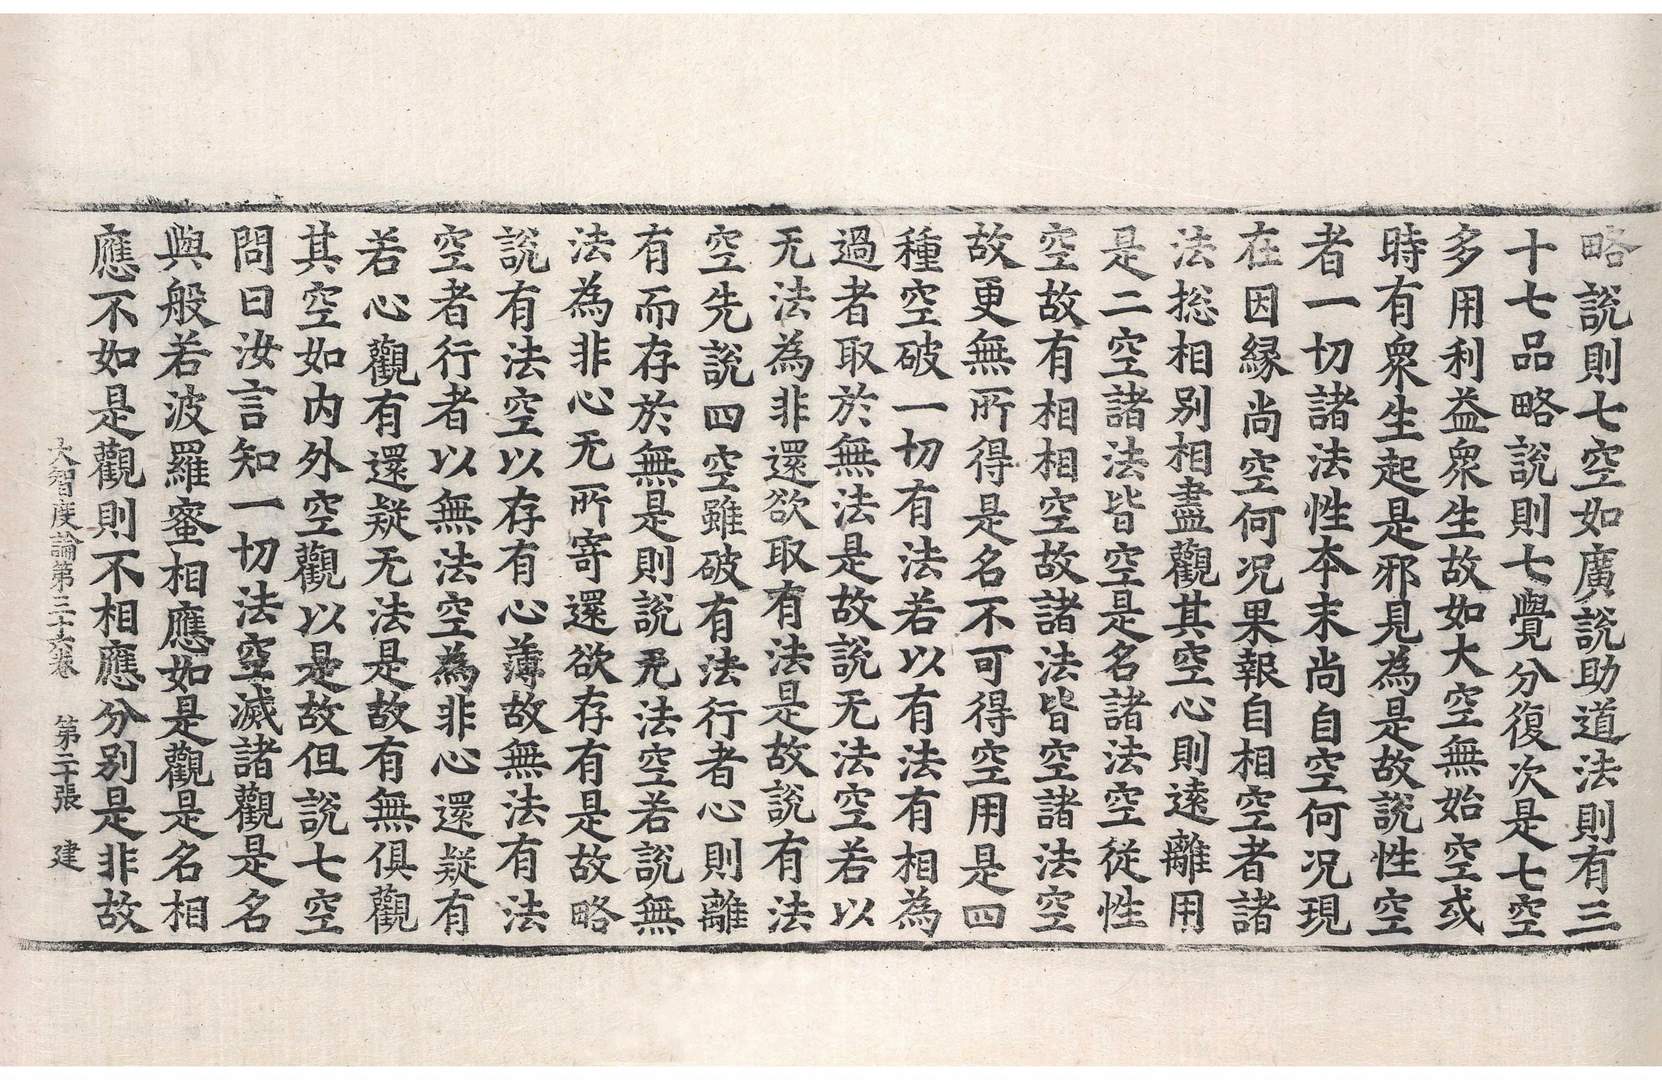 略說則七空如廣說助道法則有三
十七品略說則七覺分復次是七空
多用利益衆生故如大空無始空或
時有衆生起是邪見為是故說性空
者一切諸法性本末尚自空何况現
在因縁尚空何况果報自相空者諸
法揔相別相盡觀其空心則遠離用
是二空諸法皆空是名諸法空從性
空故有相相空故諸法皆空諸法空
故更無所得是名不可得空用是四
種空破一切有法若以有法有相為
過者取於無法是故說无法空若以
无法為非還欲取有法是故說有法
空先說四空雖破有法行者心則離
有而存於無是則說无法空若說無
法為非心无所寄還欲存有是故略
說有法空以存有心薄故無法有法
空者行者以無法空為非心還疑有
若心觀有還疑无法是故有無俱觀
其空如内外空觀以是故但說七空
問曰汝言知一切法空滅諸觀是名
與般若波羅蜜相應如是觀是名相
應不如是觀則不相應分別是非故
大智度論第三十六卷　第二十張　建